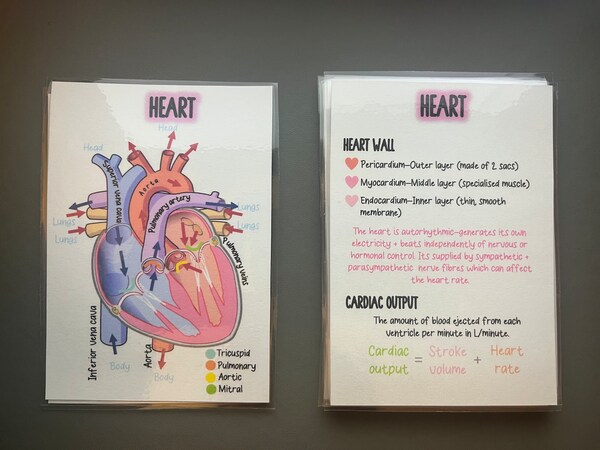 HEART
Head
Head
Superior vena cava
Aorta
Pulmonary artery
Lungs
Lungs
Lungs
Lungs
Pulmonary veins
Inferior vena cava
Aorta
Body
Body
Tricuspid
Pulmonary
Aortic
Mitral
HEART
HEART WALL
Pericardium–Outer layer (made of 2 sacs)
Myocardium–Middle layer (specialised muscle)
Endocardium–Inner layer (thin, smooth
membrane)
The heart is autorhythmic–generates its own
electricity + beats independently of nervous or
hormonal control. Its supplied by sympathetic +
parasympathetic nerve fibres which can affect
the heart rate.
CARDIAC OUTPUT
The amount of blood ejected from each
ventricle per minute in L/minute.
Cardiac output = Stroke volume + Heart rate